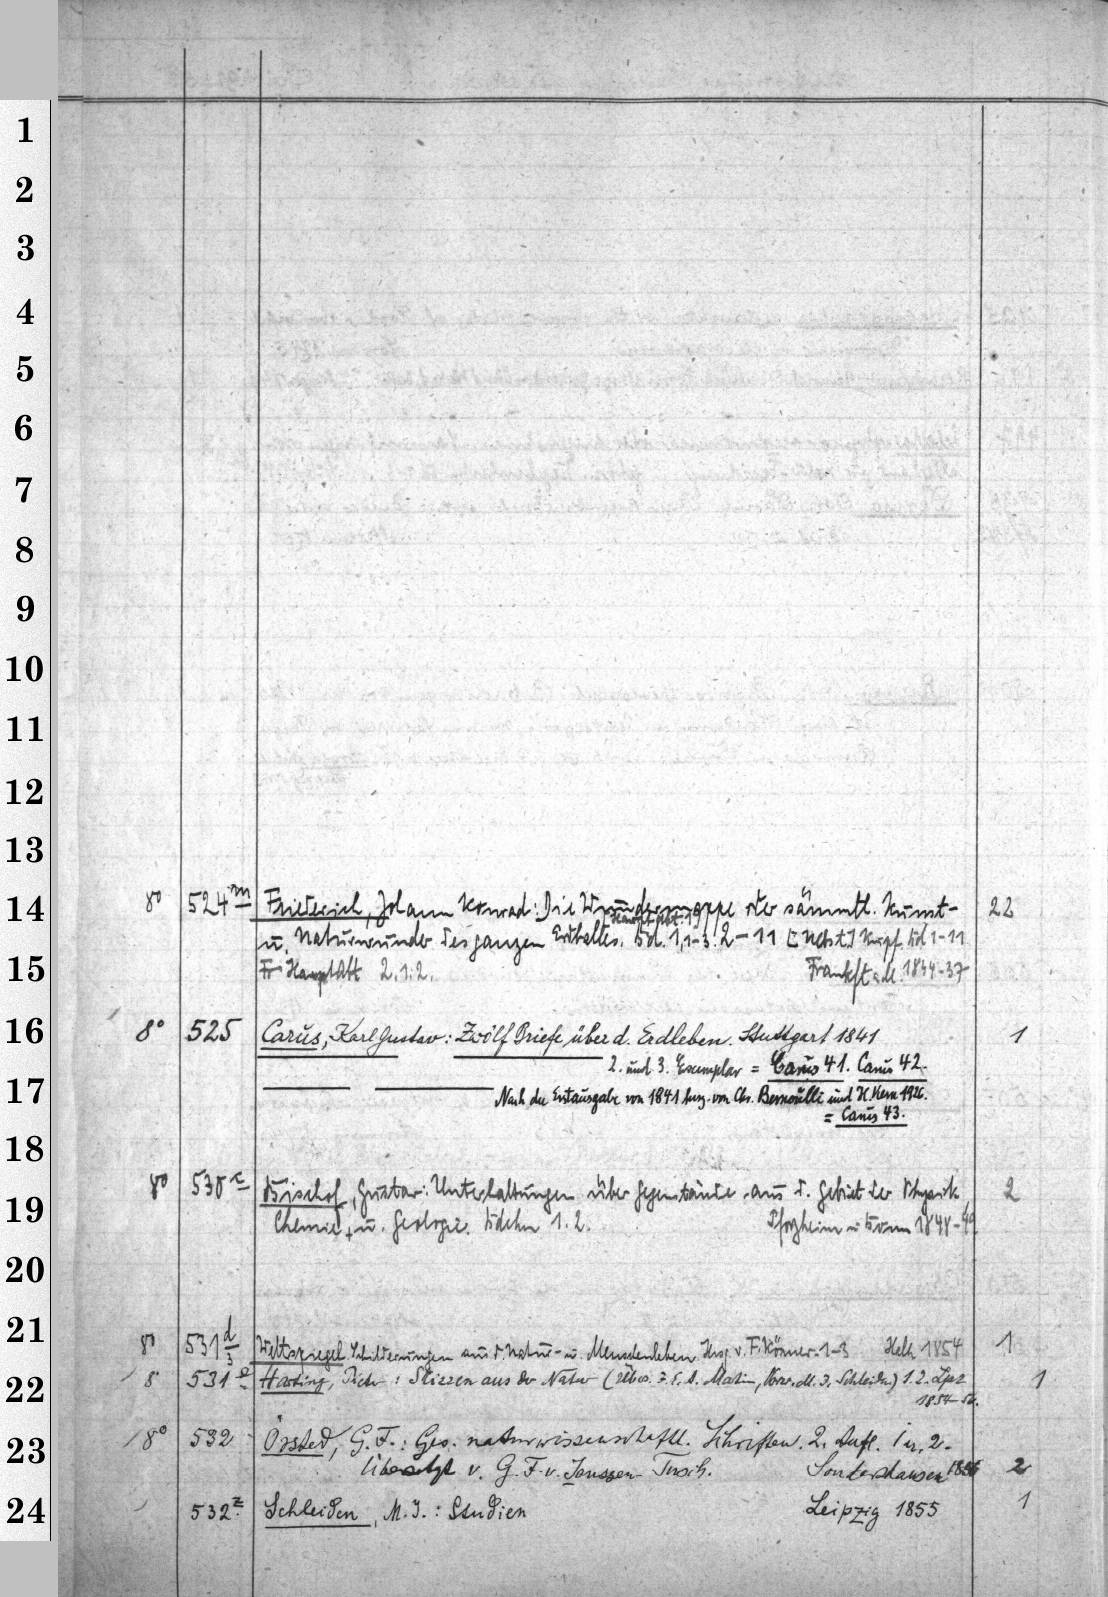 1
2
3
4
5
6
7
8
9
10
11
12
13
14
15
16
17
18
19
20
21
22
23
24
8° 524m Friederich, Johann Konrad: Die Wundermappe oder sämmtl. Kunst- 22
u. Naturwunder des ganzen Erdballes. Bd. 1,1-3. 2-11 [Nebst] Kupf. Bd 1-11
Fr Hauptabt 2.1.2. Frankft a.M. 1834-37
8° 525 Carus, Karl Gustav: Zwölf Briefe über d. Erdleben. Stuttgart 1841 1
2. und 3. Exemplar = Carus 41. Carus 42.
Nach der Erstausgabe von 1841 hrsg. von Chr. Bernoulli und H. Kern 1926.
= Carus 43.
8° 530c Bischof, Gustav: Unterhaltungen über Gegenstände aus d. Gebiet der Physik, 2
Chemie, u. Geologie. Bdchn 1.2. Pforzheim u Bonn 1848-49
8° 531d/3 Weltspiegel Schilderungen aus d. Natur- u. Menschenleben Hrsg. v. F. Körner. 1-3 1854 1
8° 531e Harting, : Skizzen aus der Natur (Übers. J. E. A. Martin, Vorw. M. J. Schleiden) 1.2. Lpz 1
1854-56.
8° 532 Örsted, G. F.: Ges. naturwissenschaftl. Schriften. 2. Aufl. 1 u. 2.
Übersetzt v. G. F. v. Sondershausen 2
532z Schleiden, M. J.: Studien Leipzig 1855 1